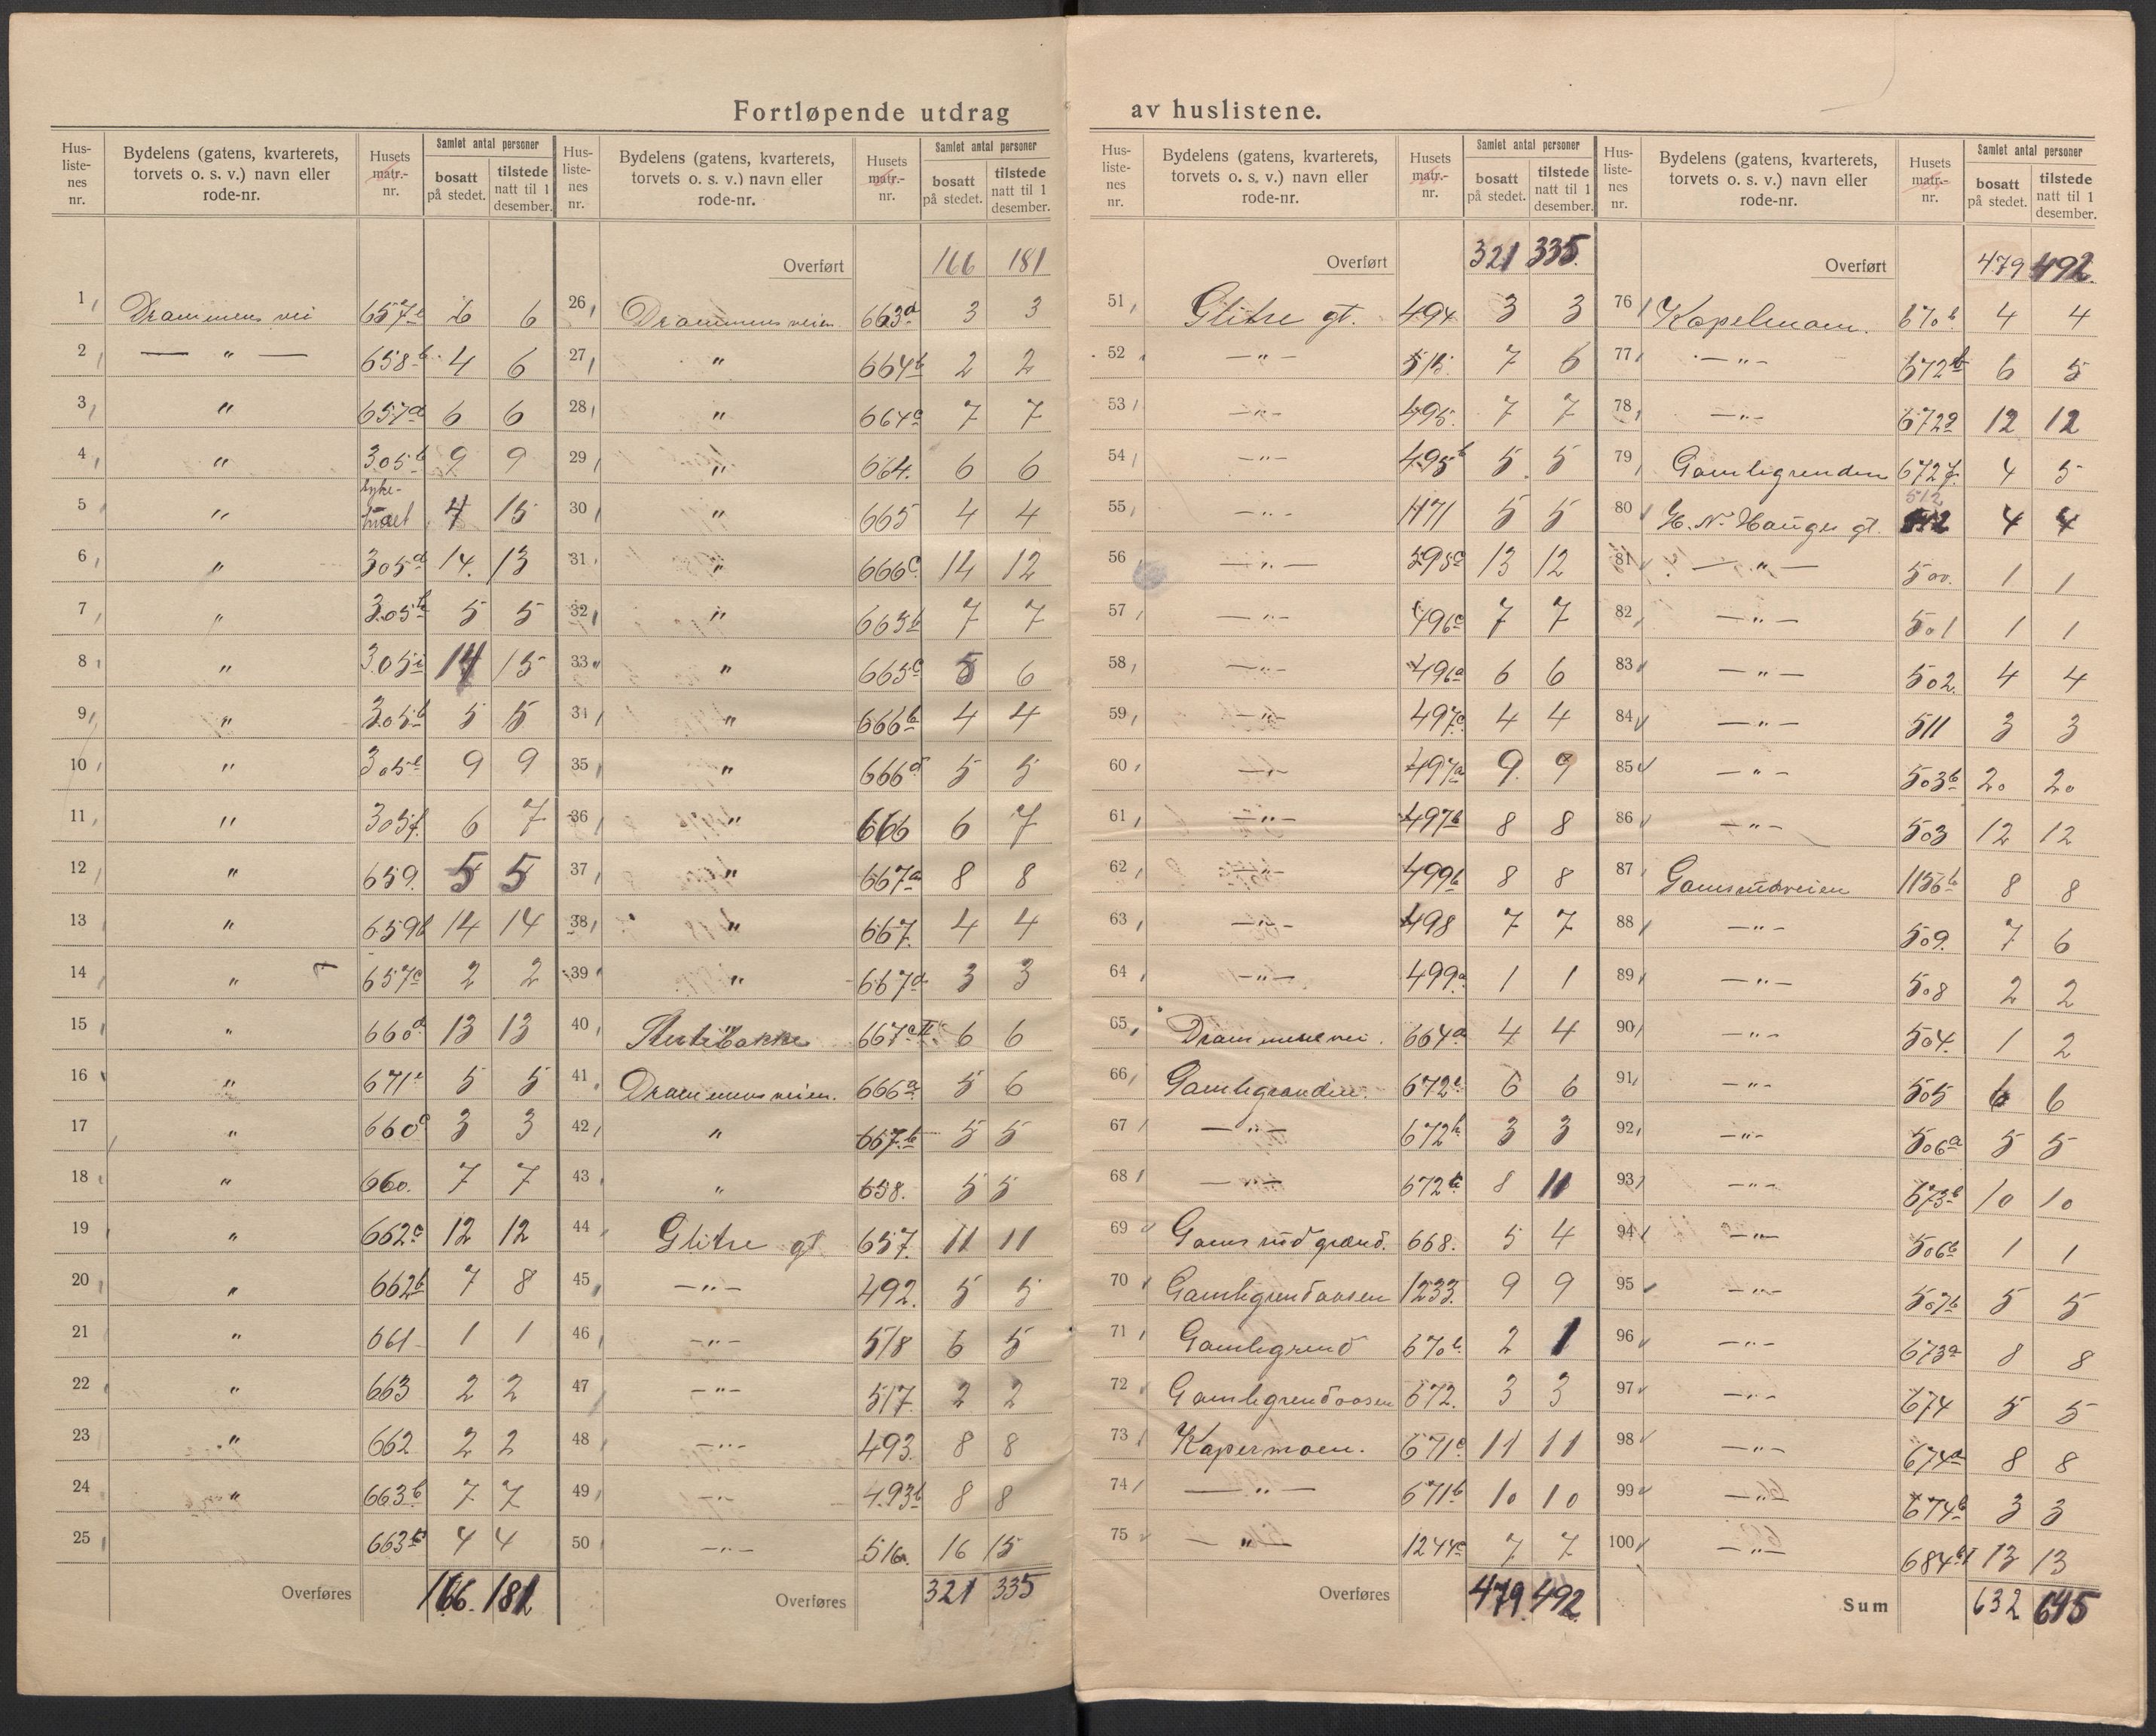 Fortløpende utdrag av huslistene.
Hus-liste-nes nr. Bydelens (gatens, kvarterets, torvets o. s. v.) navn eller rode-nr. Husets matr.-nr. Samlet antal personer bosatt på stedet. tilstede natt til 1 desember.
1 Drammens vei 657b 6 6
2 — " — 658b 4 6
3 " 657d 6 6
4 " 305b 9 9
5 " syke-huset 4 15
6 " 305d 14. 13
7 " 305h 5 5
8 " 305i 14 15
9 " 305b 5 5
10 " 305e 9 9
11 " 305f. 6 7
12 " 659. 5 5
13 " 659b 14 14
14 " 657c 2 2
15 " 660d 13 13
16 " 671e 5 5
17 " 660c 3 3
18 " 660. 7 7
19 " 662c 12 12
20 " 662b 7 8
21 " 661 1 1
22 " 663 2 2
23 " 662 2 2
24 " 663b 7 7
25 663c 4 4
Overføres 166. 181
Hus-liste-nes nr. Bydelens (gatens, kvarterets, torvets o. s. v.) navn eller rode-nr. Husets matr.-nr. Samlet antal personer bosatt på stedet. tilstede natt til 1 desember.
Overført 166 181
26 Drammensveien 663d 3 3
27 " 664b 2 2
28 " 664c 7 7
29 " 664. 6 6
30 " 665 4 4
31 " 666c 14 12
32 " 665b 7 7
33 " 665c 5 6
34 " 666b 4 4
35 " 666d 5 5
36 " 666 6 7
37 " 667a 8 8
38 " 667. 4 4
39 " 667d 3 3
40 667a II 6 6
41 Drammensveien. 666a 5 6
42 " 667.b 5 5
43 " 658. 5 5
44 Glitre gt 657. 11 11
45 — " — 492. 5 5
46 — " — 518 6 5
47 — " — 517. 2 2
48 — " — 493. 8 8
49 — " — 493b 8 8
50 — " — 516. 16 15
Overføres 321 335
Hus-liste-nes nr. Bydelens (gatens, kvarterets, torvets o. s. v.) navn eller rode-nr. Husets matr.-nr. Samlet antal personer bosatt på stedet. tilstede natt til 1 desember.
Overført 321 335.
51 Glitre gt. 494 3 3
52 — " — 515. 7 6
53 — " — 495. 7 7
54 — " — 495b 5 5
55 — " — 1171 5 5
56 — " — 295c 13 12
57 — " — 496c 7 7
58 — " — 496a 6 6
59 — " — 497c 4 4
60 — " — 497a 9. 9
61 — " — 497b 8 8
62 — " — 499b 8 8
63 — " — 498 7 7
64 — " — 499a 1 1
65 Drammensvei. 664a 4 4
66 Gamlegrenden. 672e 6 6
67 — " — 672h 3 3
68 — " — 672c 8 11
69 Gamsrudgrænd. 668. 5 4
70 Gamlegrendaasen 1233. 9 9
71 Gamlegrend 670b 2 1
72 Gamlegrendaasen 672. 3 3
73 Kapermoen. 671c 11 11
74 — " — 671b 10 10
75 — " 1244c 7 7
Overføres 479. 492
Hus-liste-nes nr. Bydelens (gatens, kvarterets, torvets o. s. v.) navn eller rode-nr. Husets matr.-nr. Samlet antal personer bosatt på stedet. tilstede natt til 1 desember.
Overført 479 492.
76 Kapelmoen. 670b 4 4
77 — " — 672b 6 5
78 — " — 672a 12 12
79 Gamlegrenden 672f. 4 5
80 H. N. Hauges gt. 512 4 4
81 — " — 500. 1 1
82 — " — 501 1 1
83 — " — 502. 4 4
84 — " — 511 3 3
85 — " — 503b 20 20
86 — " — 503 12 12
87 Gamsrudveien 1156b 8 8
88 — " — 509. 7 6
89 — " — 508 2 2
90 — " — 504. 1 2
91 — " — 505 6 6
92 — " — 506a 5 5
93 — " — 673b 10 10
94 — " — 506b 1 1
95 — " — 507b 5 5
96 — " — 673a 8 8
97 — " — 674 5 5
98 — " — 674a 8 8
99 — " — 674b 3 3
100 — " — 684 13 13
Sum 632 645